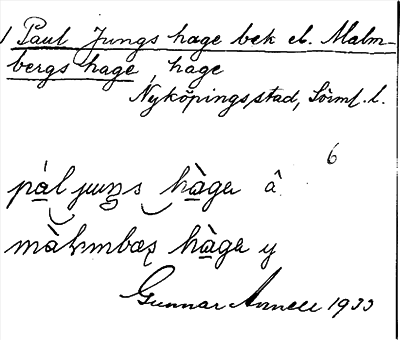 1 Paul Jungs hage bek el. Malm-
bergs hage, hage
Nyköpingsstad, Sörml. l.
6
pàl juŋs hàga â
màlmbæș hàga y
Gunnar Annell 1933